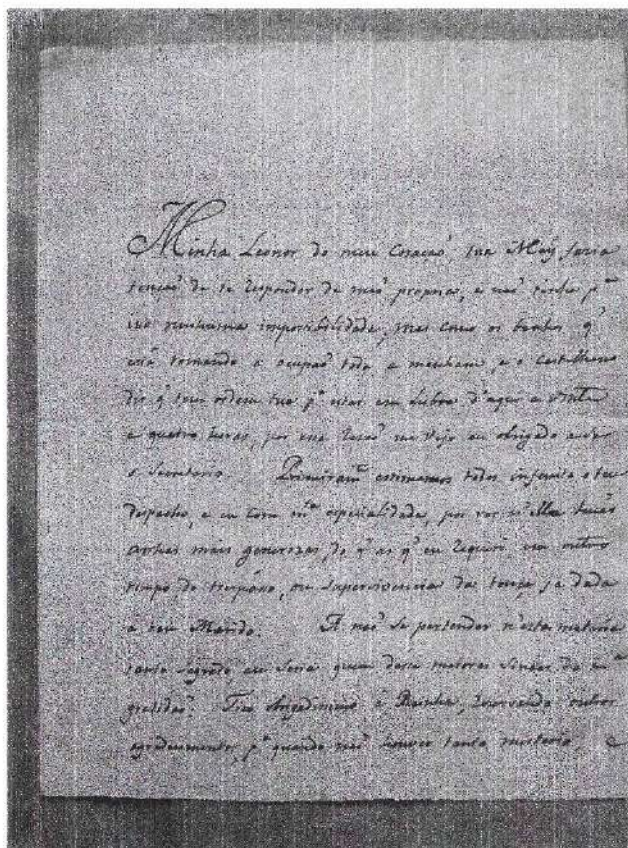 Minha Leonor do meu Coraçaõ, tua Mãy, fazia
tençaõ de te responder de maõ propria, e naõ tinha pª
isso nenhuma impossibilidade, mas como os banhos q'
está tomando a ocupaõ toda a menham, e o Castelhano
diz q' tem ordem tua pª estar em Lisboa d'aqui a vinte
e quatro horas, por essa rezaõ me vejo eu obrigado a ser
o Secretario. Primeiramᵗᵉ estimamos todos infinito o teu
despacho, e eu com mᵗᵃ especialidade, por ver n'elle
mais generozas, do q' as q' eu requeri em outro
tempo de, ou supervivencia da tença ja dada
a teu Marido. A naõ se pertender n'esta materia
tanto segredo eu seria quem desse mayores sinaes de
Rainha, rezervando outros
agradecimento, pª quando naõ houver tanto misterio, e